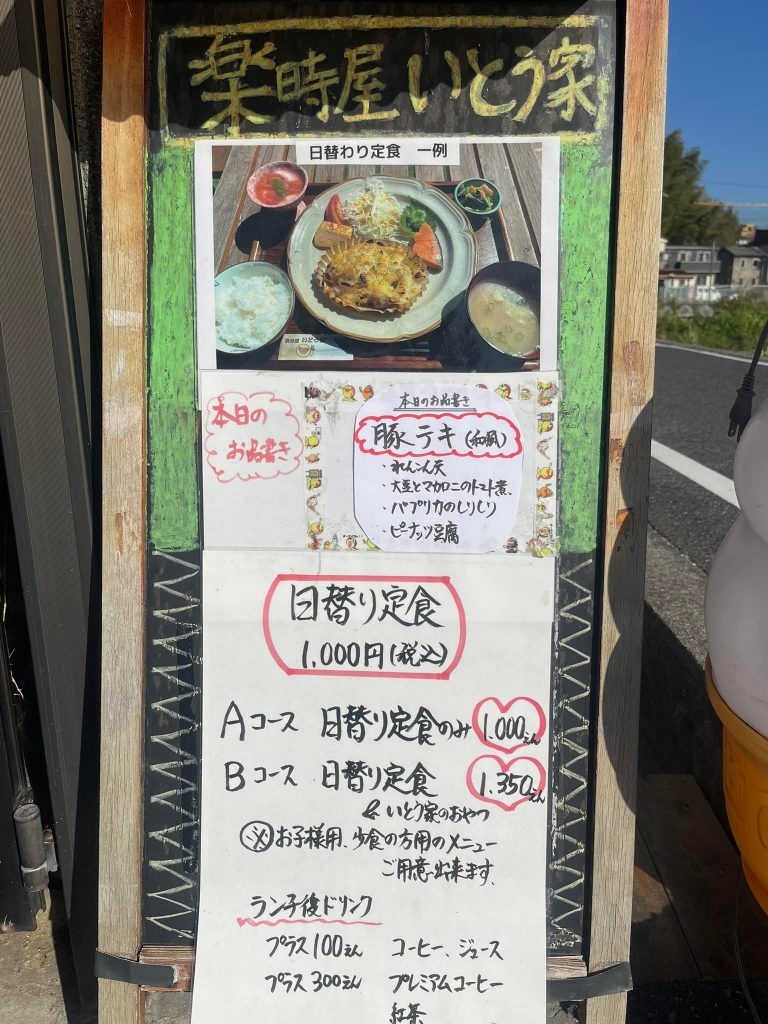 楽時屋 いとう家
日替わり定食 一例
本日の
お品書き
本日のお品書き
豚テキ(和風)
・れんこん天
・大豆とマカロニのトマト煮、
・パプリカのしりしり
・ピーナッツ豆腐
日替り定食
1,000円(税込)
Aコース 日替り定食のみ 1.000えん
Bコース 日替り定食 1.350えん
& いとう家のおやつ
※お子様用、少食の方用のメニュー
ご用意出来ます。
ランチ後ドリンク
プラス100えん コーヒー、ジュース
プラス300えん プレミアムコーヒー
紅茶